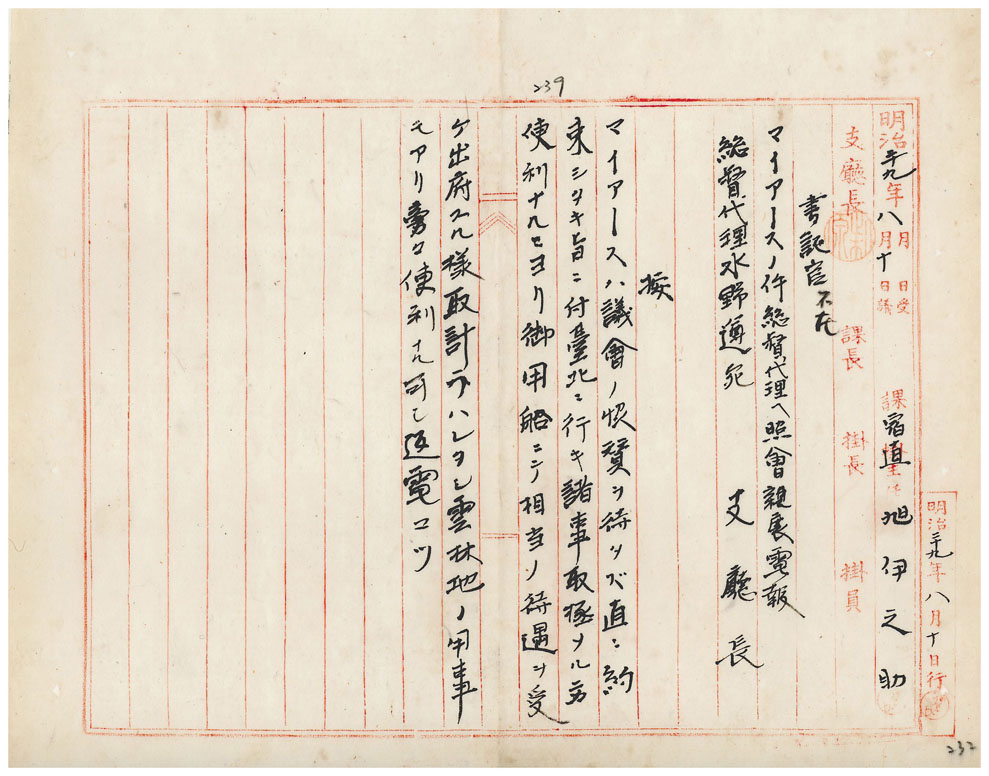 239
明治廿九年八月十日行
明治廿九年八月十日議 月日受
課 宿直 旭伊之助
支廳長 課長 掛長 掛員
書記官不在
マイアースノ件総督代理ヘ照會親展電報
総督代理水野遵宛 支廳長
按
マイアースハ議會ノ協賛ヲ待タズ直ニ約
束シタキ旨ニ付臺北ニ行キ諸事取極メル方
便利ナルニヨリ御用船ニテ相当ノ待遇ヲ受
ケ出府スル様取計ラハレタシ雲林地ノ用事
モアリ旁々便利ナル可シ返電コツ
232